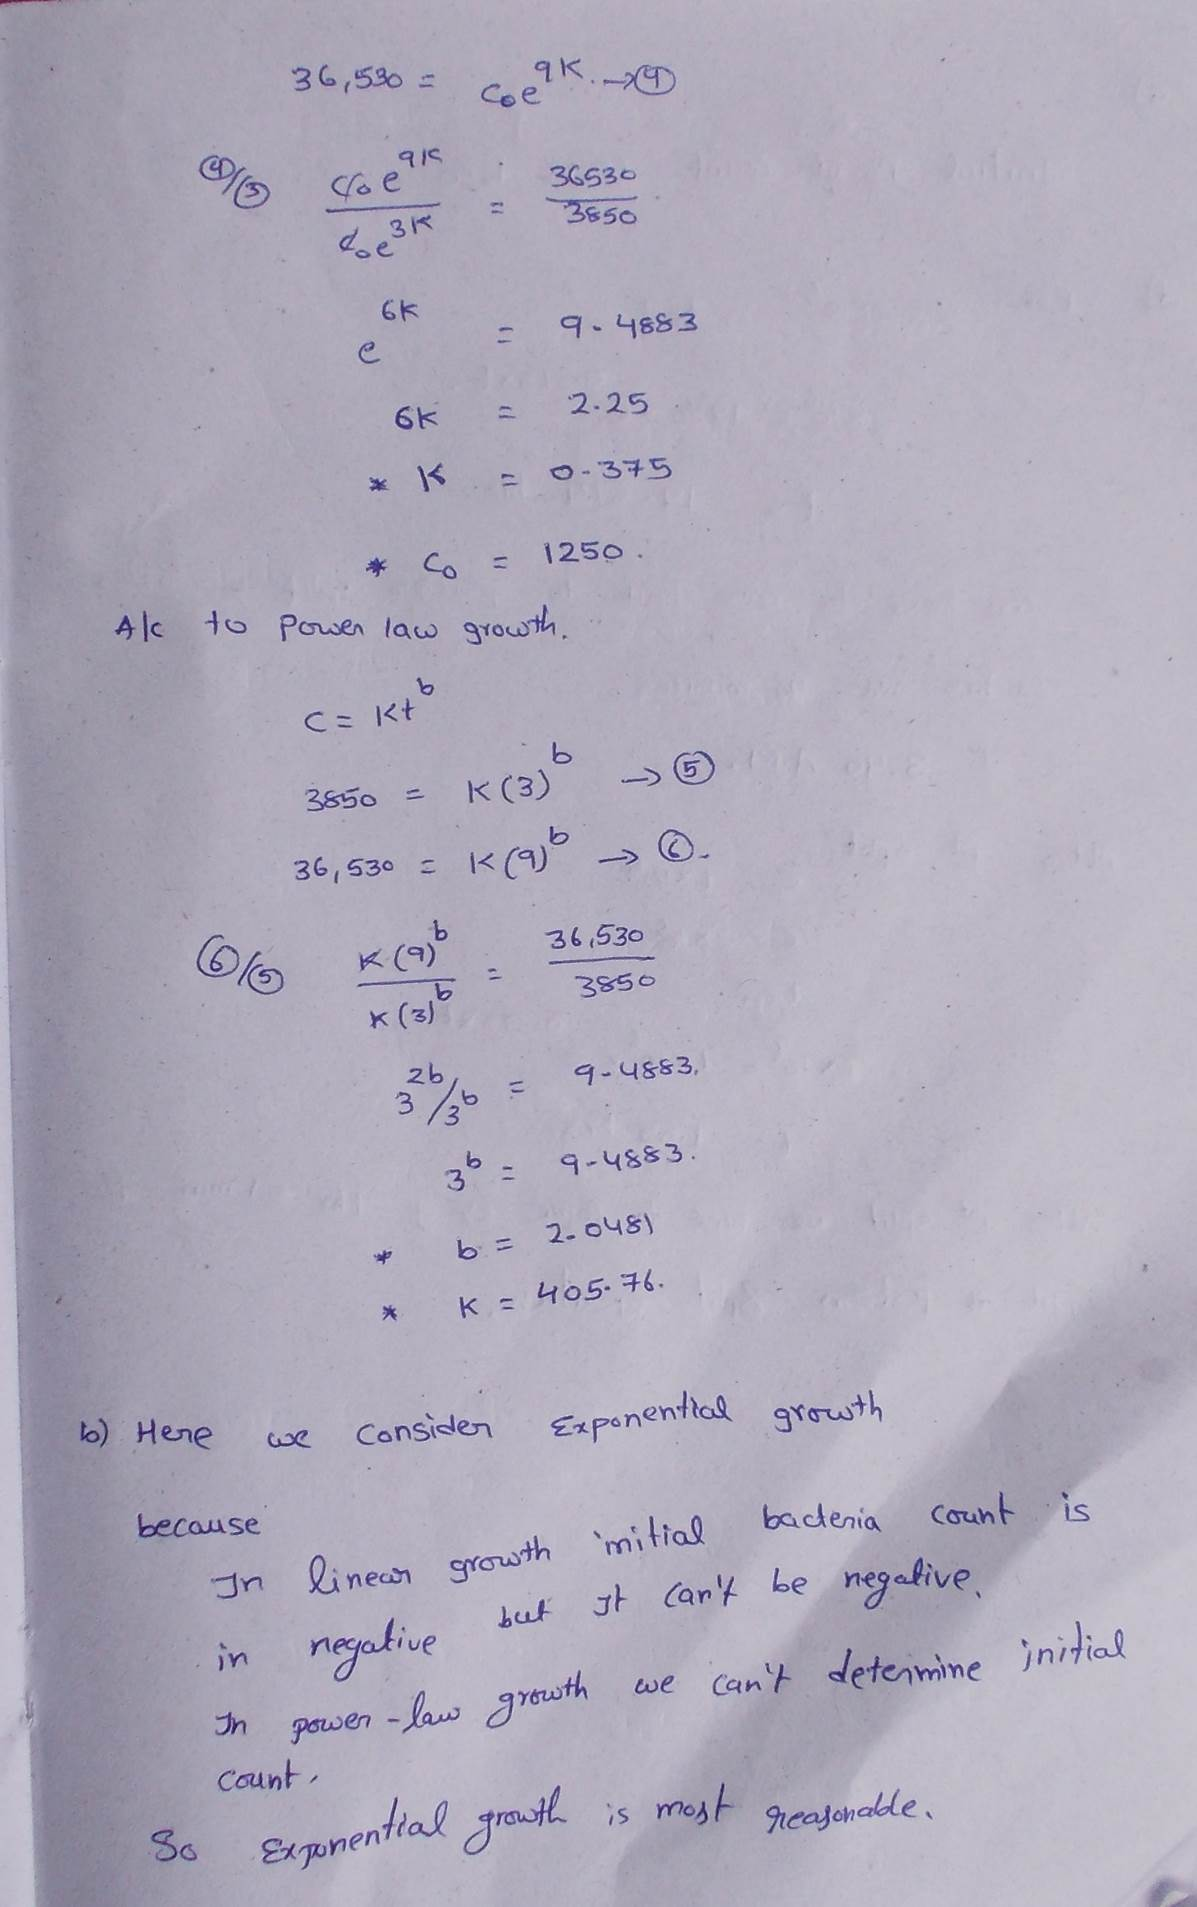 36,530 = C₀e^9K. → ④
④/③ C₀e^9K / C₀e^3K = 36530 / 3850
e^6K = 9.4883
6K = 2.25
* K = 0.375
* C₀ = 1250.
A/c to power law growth.
C = Kt^b
3850 = K(3)^b → ⑤
36,530 = K(9)^b → ⑥.
⑥/⑤ K(9)^b / K(3)^b = 36,530 / 3850
3^2b / 3^b = 9.4883.
3^b = 9.4883.
* b = 2.0481
* K = 405.76.
b) Here we consider Exponential growth
because
In linear growth initial bacteria count is
in negative but It can't be negative.
In power-law growth we can't determine initial
count.
So Exponential growth is most reasonable.